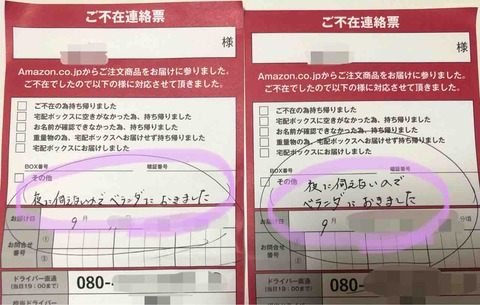 ご不在連絡票
様
Amazon.co.jpからご注文商品をお届けに参りました。
ご不在でしたので以下の様に対応させて頂きます。
ご不在の為持ち帰りました
宅配ボックスに空きがなかった為、持ち帰りました
お名前が確認できなかった為、持ち帰りました
重量物の為、宅配ボックスへお届けせず持ち帰りました
宅配ボックスにお届けしました
BOX番号 暗証番号
その他
夜に伺えないので ベランダに おきました
お届け日 9 月
お問合せ番号
①
②
ドライバー直通 080-
(当日19:00まで)
ご不在連絡票
様
Amazon.co.jpからご注文商品をお届けに参りました。
ご不在でしたので以下の様に対応させて頂きます。
ご不在の為持ち帰りました
宅配ボックスに空きがなかった為、持ち帰りました
お名前が確認できなかった為、持ち帰りました
重量物の為、宅配ボックスへお届けせず持ち帰りました
宅配ボックスにお届けしました
BOX番号 暗証番号
その他
夜に伺えないので
ベランダに おきました
お届け日 9 月 分頃
お問合せ番号
①
②
ドライバー直通 080-
(当日19:00まで)